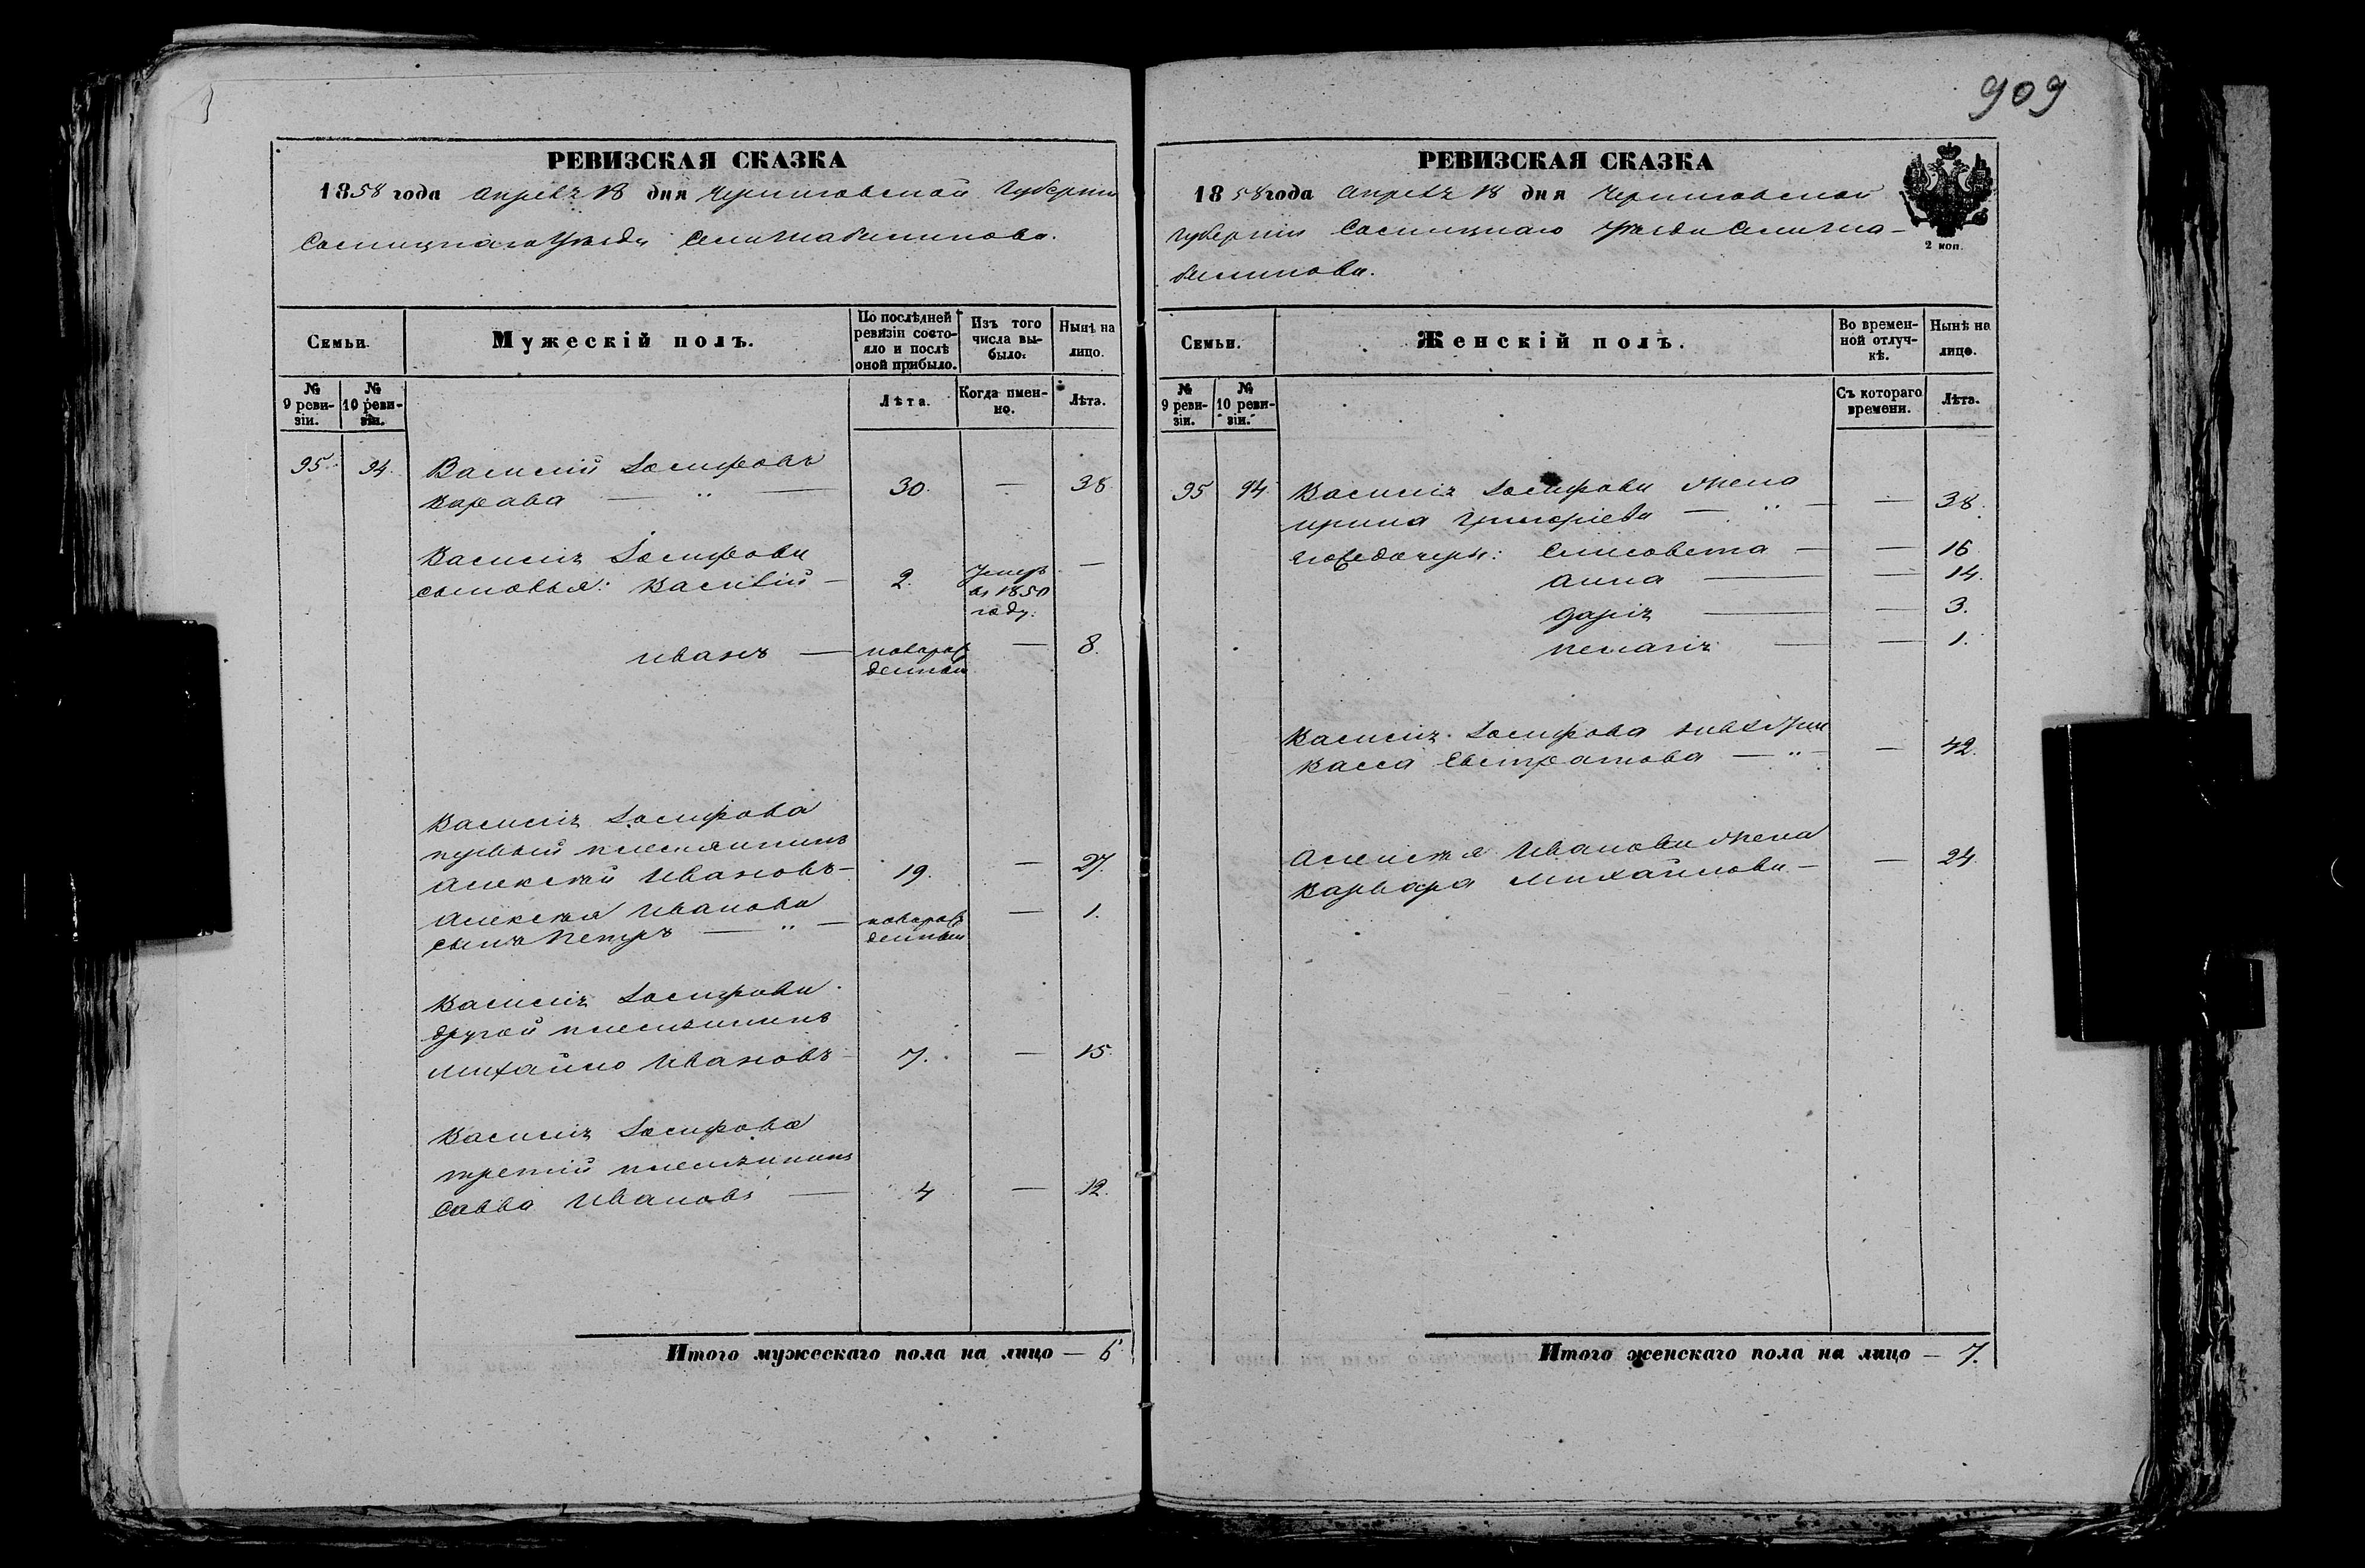 909
РЕВИЗСКАЯ СКАЗКА
1858 года Апреля 18 дня Черниговской Губернии
Сосницкаго Уезда Села
Семьи.
Мужескій полъ.
По послѣдней ревизіи состояло и послѣ оной прибыло.
Изъ того числа выбыло:
Нынѣ на лицо.
№ 9 ревизіи.
№ 10 ревизіи.
Лѣта.
Когда именно.
Лѣта.
95. 94. Василий Іосифовъ
30. — 38.
Василия Іосифова
сыновья: Василий — 2. Умеръ —
въ 1850
году.
Иванъ — новорож — 8.
денный
Василия Іосифова
первый племянникъ
Алексей Ивановъ — 19. — 27.
Алексея Иванова
сынъ Петръ — „ — новорож — 1.
денный
Василия Іосифова
другой племянникъ
Михайло Ивановъ 7. — 15.
Василия Іосифова
третий племянникъ
Савва Ивановъ — 4 — 12.
Итого мужескаго пола на лицо — 6
РЕВИЗСКАЯ СКАЗКА
1858 года Апреля 18 дня Черниговской
Губернии Сосницкаго Уезда Села
2 коп.
Семьи.
Женскій полъ.
Во временной отлучкѣ.
Нынѣ на лицо.
№ 9 ревизіи.
№ 10 ревизіи.
Съ котораго времени.
Лѣта.
95 94. Василия Іосифова жена
Ирина Григориева — „ — — 38.
его дочери: Елисовета — — 16
Анна — — 14.
Дария — — 3.
Пелагия — — 1.
Василия Іосифова
Васса Евстратова — „ — — 42.
Алексея Иванова жена
Варвара Михайлова — — 24.
Итого женскаго пола на лицо — 7.